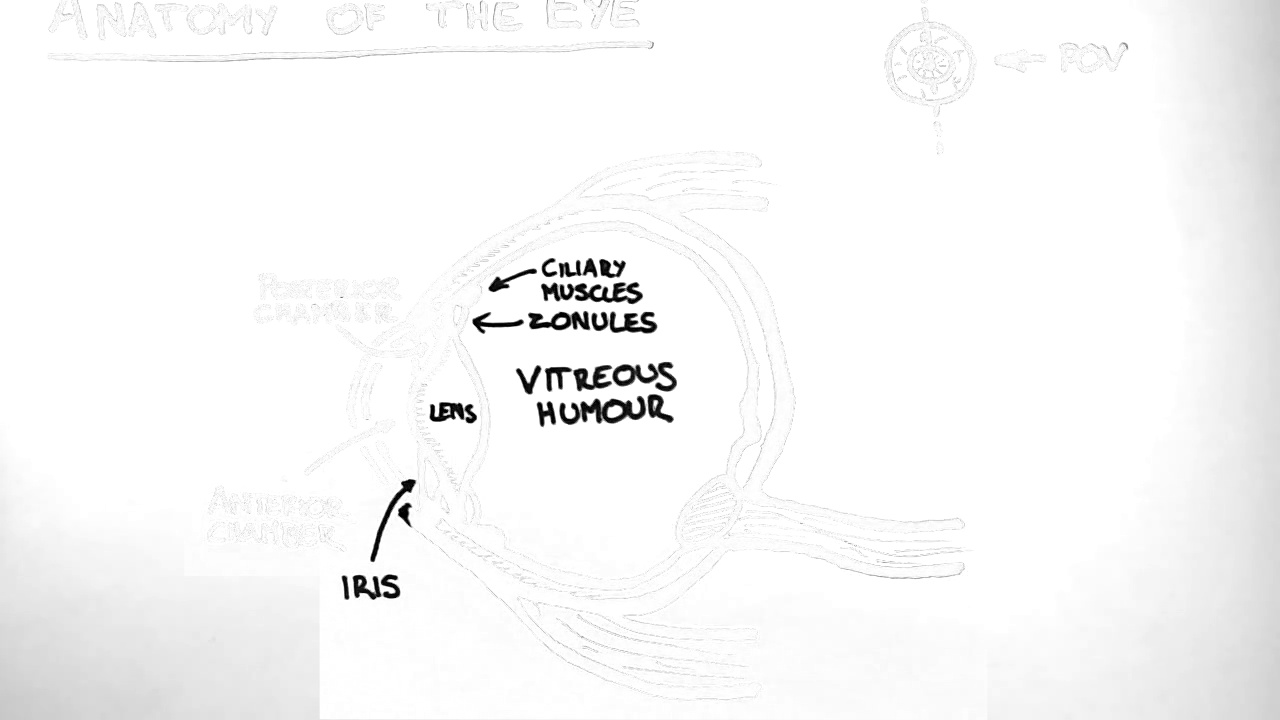 ANATOMY OF THE EYE
POV
CILIARY
MUSCLES
ZONULES
POSTERIOR
CHAMBER
VITREOUS
HUMOUR
LENS
ANTERIOR
CHAMBER
IRIS